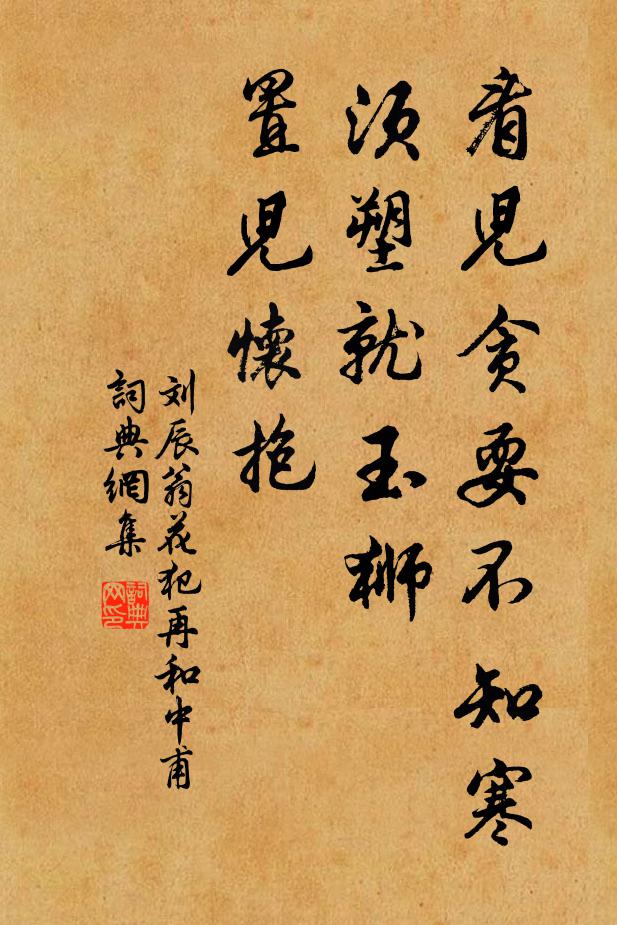 看児貪耍不知寒
須塑就玉獅
置児懷抱
刘辰翁花犯再和中甫
詞典網集
詞典网印